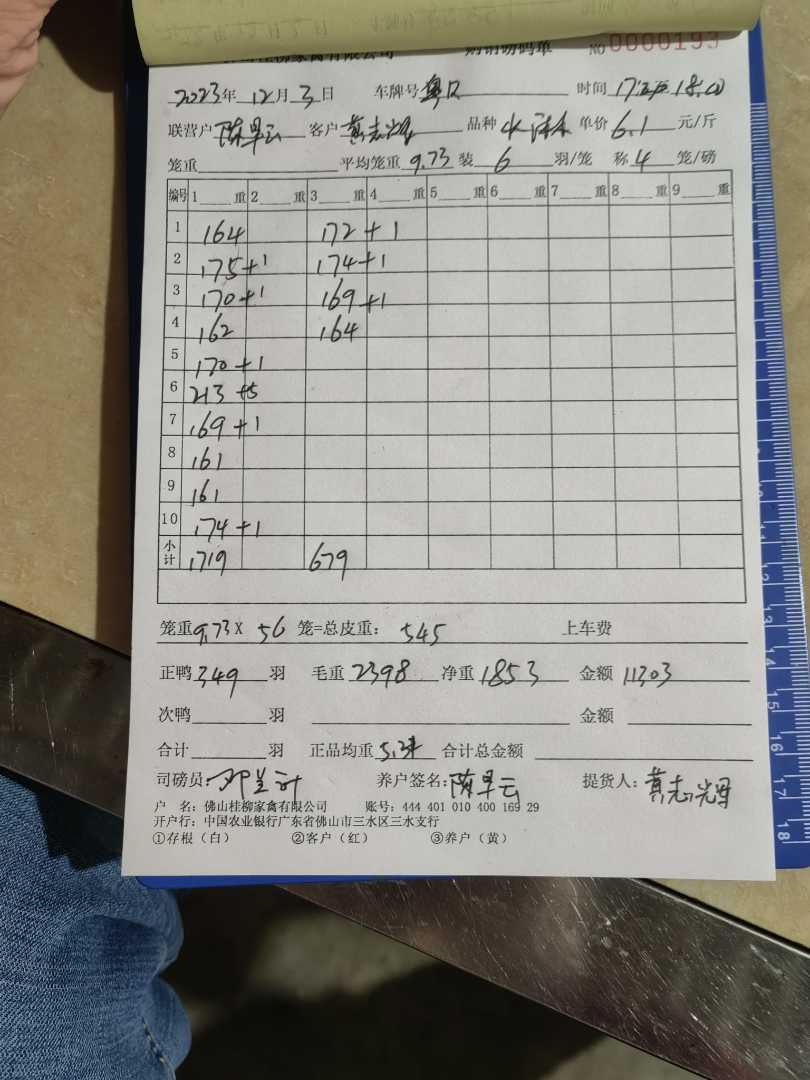 桂柳家禽有限公司 购销磅码单 NO 0000193
2023年 12月 3日 车牌号 粤 时间 18:00
联营户 陈旱云 客户 黄志 品种 水 单价 6.1 元/斤
笼重 平均笼重 9.73 装 6 羽/笼 称 4 笼/磅
编号 1 重 2 重 3 重 4 重 5 重 6 重 7 重 8 重 9 重
1 164 172+1
2 175+1 174+1
3 170+1 169+1
4 162 164
5 170+1
6 213+5
7 169+1
8 161
9 161
10 174+1
小计 1719 679
笼重 9.73 X 56 笼=总皮重: 545 上车费
正鸭 349 羽 毛重 2398 净重 1853 金额 11303
次鸭 羽 金额
合计 羽 正品均重 合计总金额
司磅员: 养户签名: 陈旱云 提货人: 黄志
户 名: 佛山桂柳家禽有限公司 账号: 444 401 010 400 169 29
开户行: 中国农业银行广东省佛山市三水区三水支行
①存根(白) ②客户(红) ③养户(黄)
11
12
13
14
15
16
17
18